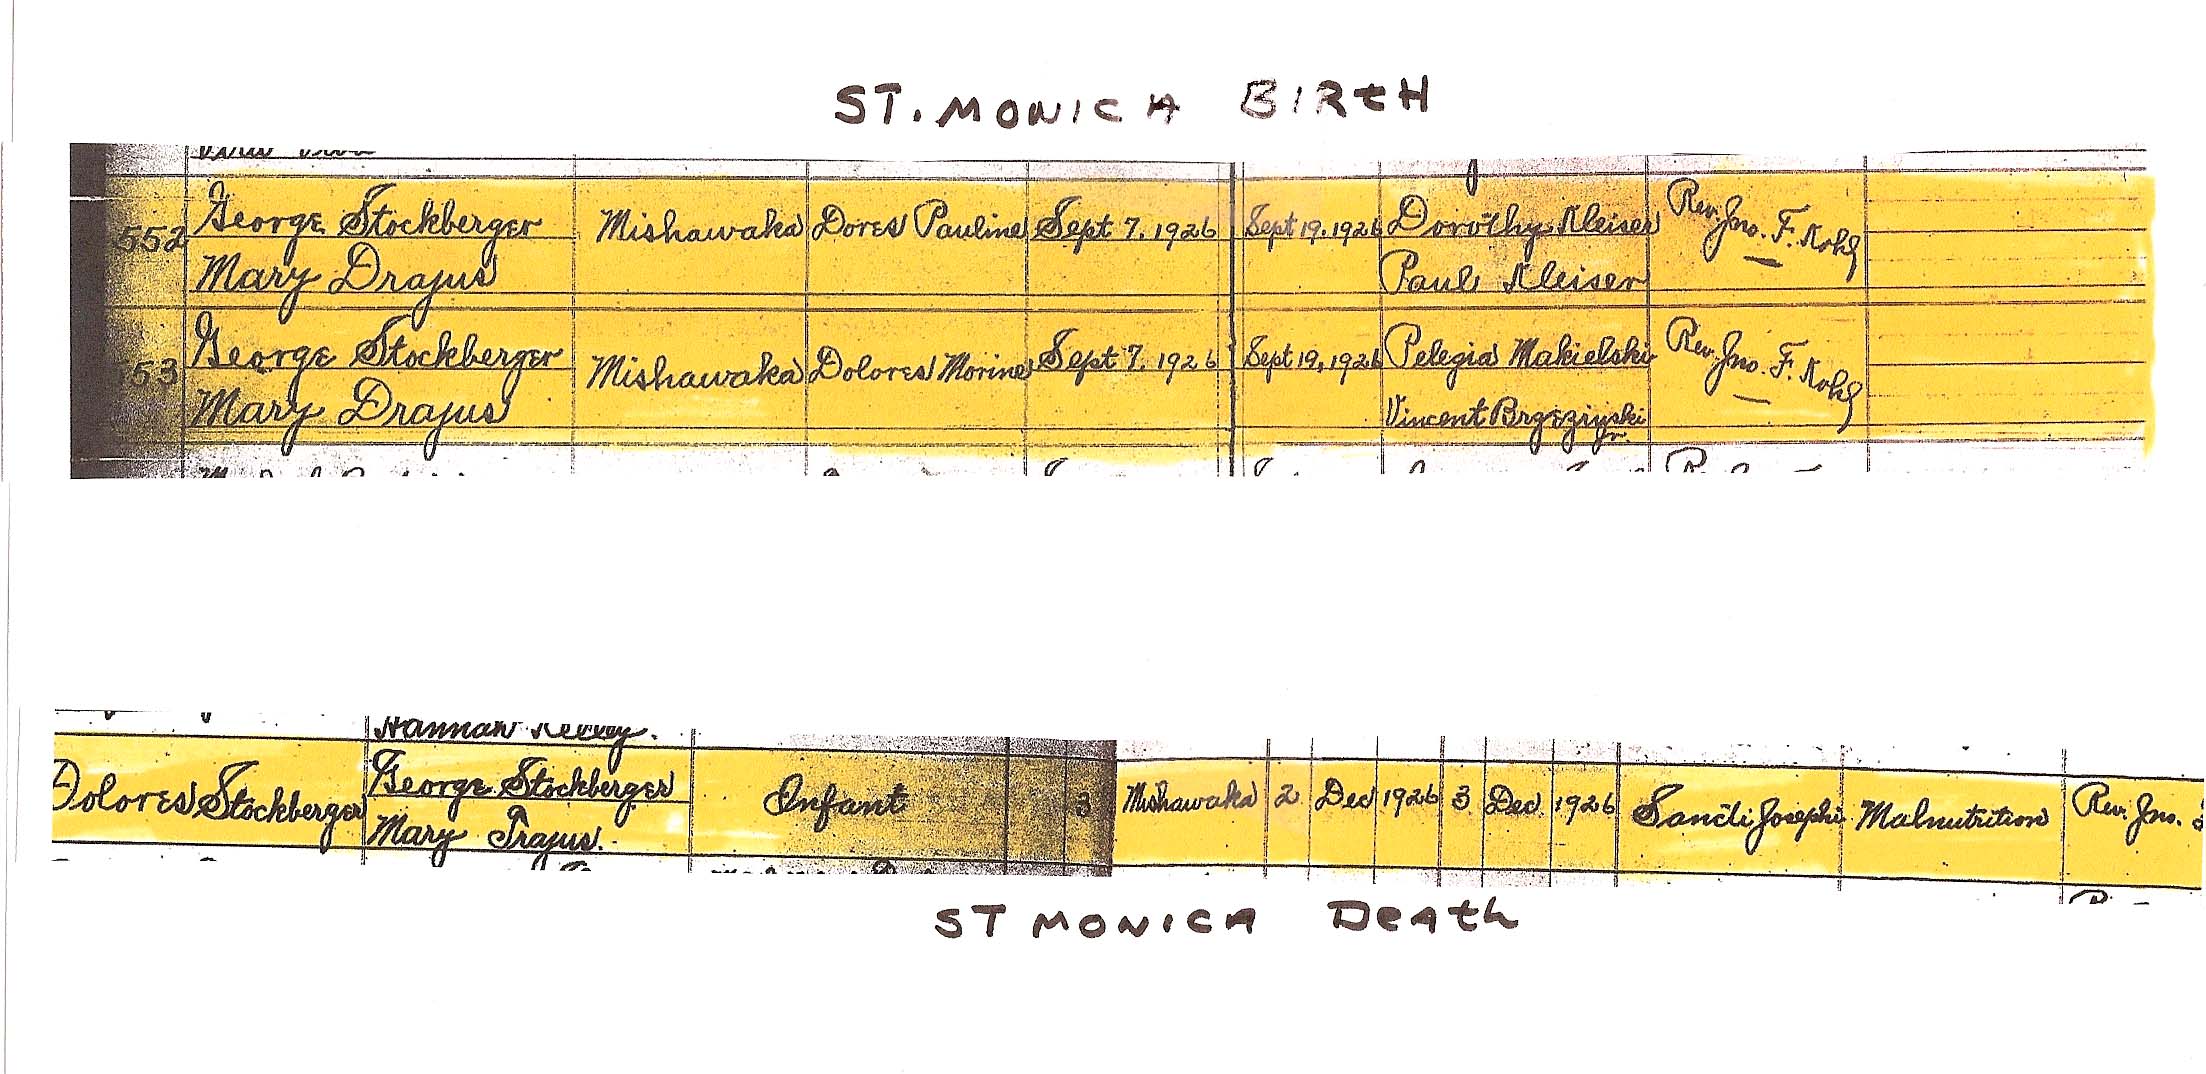 ST. MONICA BIRtH
552 George Stockberger Mishawaka Dores Pauline Sept 7. 1926 Sept 19. 1926 Dorothy Kleiser Rev. Jno. F. Kohl
Mary Drajus Paul Kleiser
553 George Stockberger Mishawaka Dolores Morine Sept 7. 1926 Sept 19, 1926 Pelegia Makielski Rev. Jno. F. Kohl
Mary Drajus Vincent Brzezinski
Hannah Kelley.
Dolores Stockberger George Stockberger Infant 3 Mishawaka 2 Dec 1926 3 Dec 1926 Sancti Josephi Malnutrition Rev. Jno.
Mary Trajus.
ST MONICA DeAth